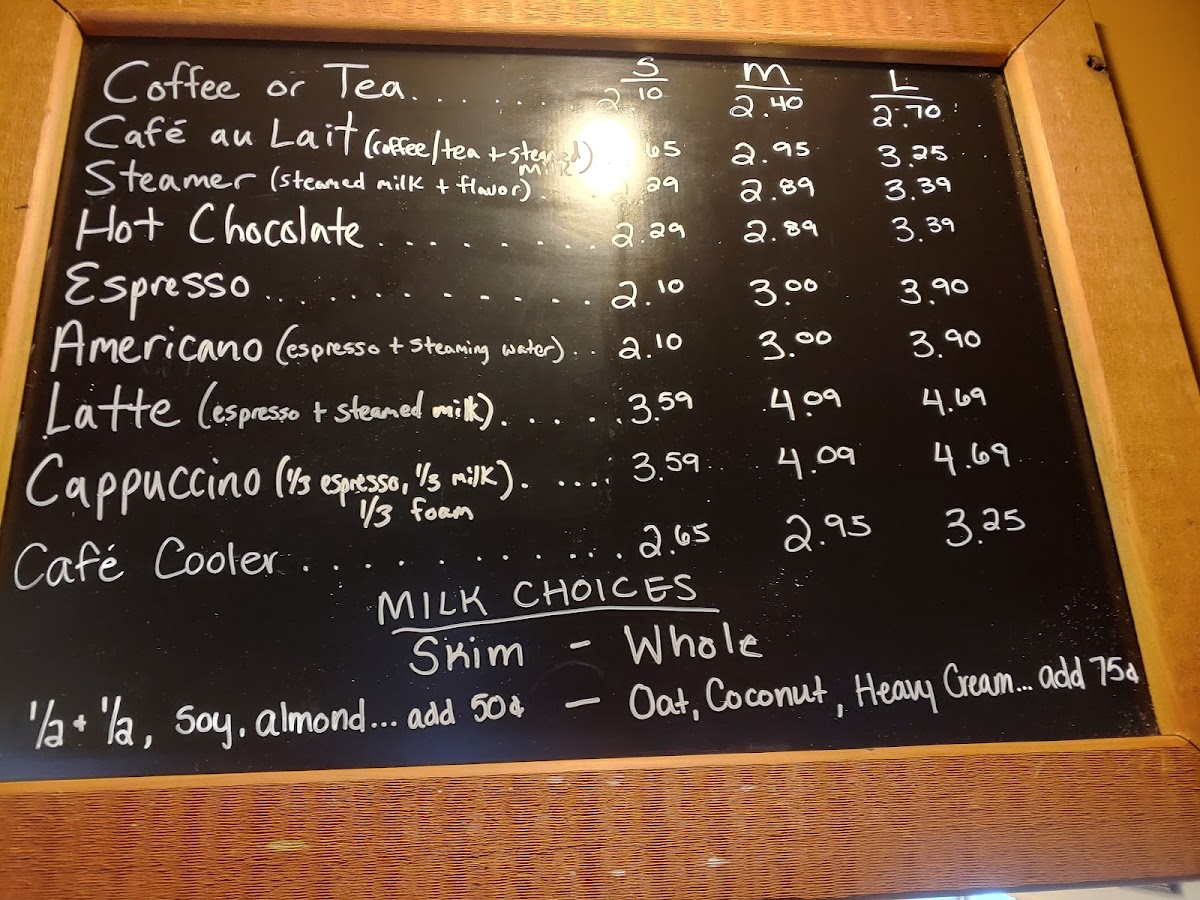 S M L
Coffee or Tea....... 2.10 2.40 2.70
Café au Lait (coffee/tea + steamed milk) .65 2.95 3.25
Steamer (steamed milk + flavor).. .29 2.89 3.39
Hot Chocolate......... 2.29 2.89 3.39
Espresso............. 2.10 3.00 3.90
Americano (espresso + steaming water).. 2.10 3.00 3.90
Latte (espresso + steamed milk)..... 3.59 4.09 4.69
Cappuccino (1/3 espresso, 1/3 milk)..... 3.59 4.09 4.69
1/3 foam
Café Cooler........... 2.65 2.95 3.25
MILK CHOICES
Skim - Whole
1/2 + 1/2, Soy, almond... add 50¢ - Oat, Coconut, Heavy Cream... add 75¢